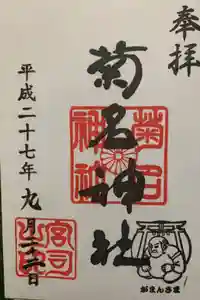 奉拝
菊名神社
菊名神社
平成二十七年九月二十二日
宮司之印
がまんさま